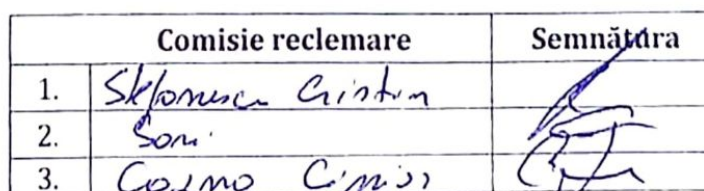 Comisie reclemare Semnătura
1. Ștefonescu Cristian
2. Soni
3. Cosmo